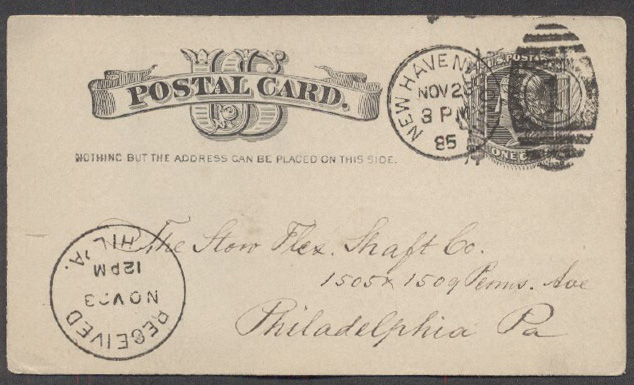 POSTAL CARD.
U.S. POSTAL
NEW HAVEN
NOV 2
3 PM
85
1
ONE
NOTHING BUT THE ADDRESS CAN BE PLACED ON THIS SIDE.
The Stow Flex. Shaft Co.
1505 x 1509 Penns. Ave
Philadelphia Pa
RECEIVED
NOV 3
12PM
PHIL'A.